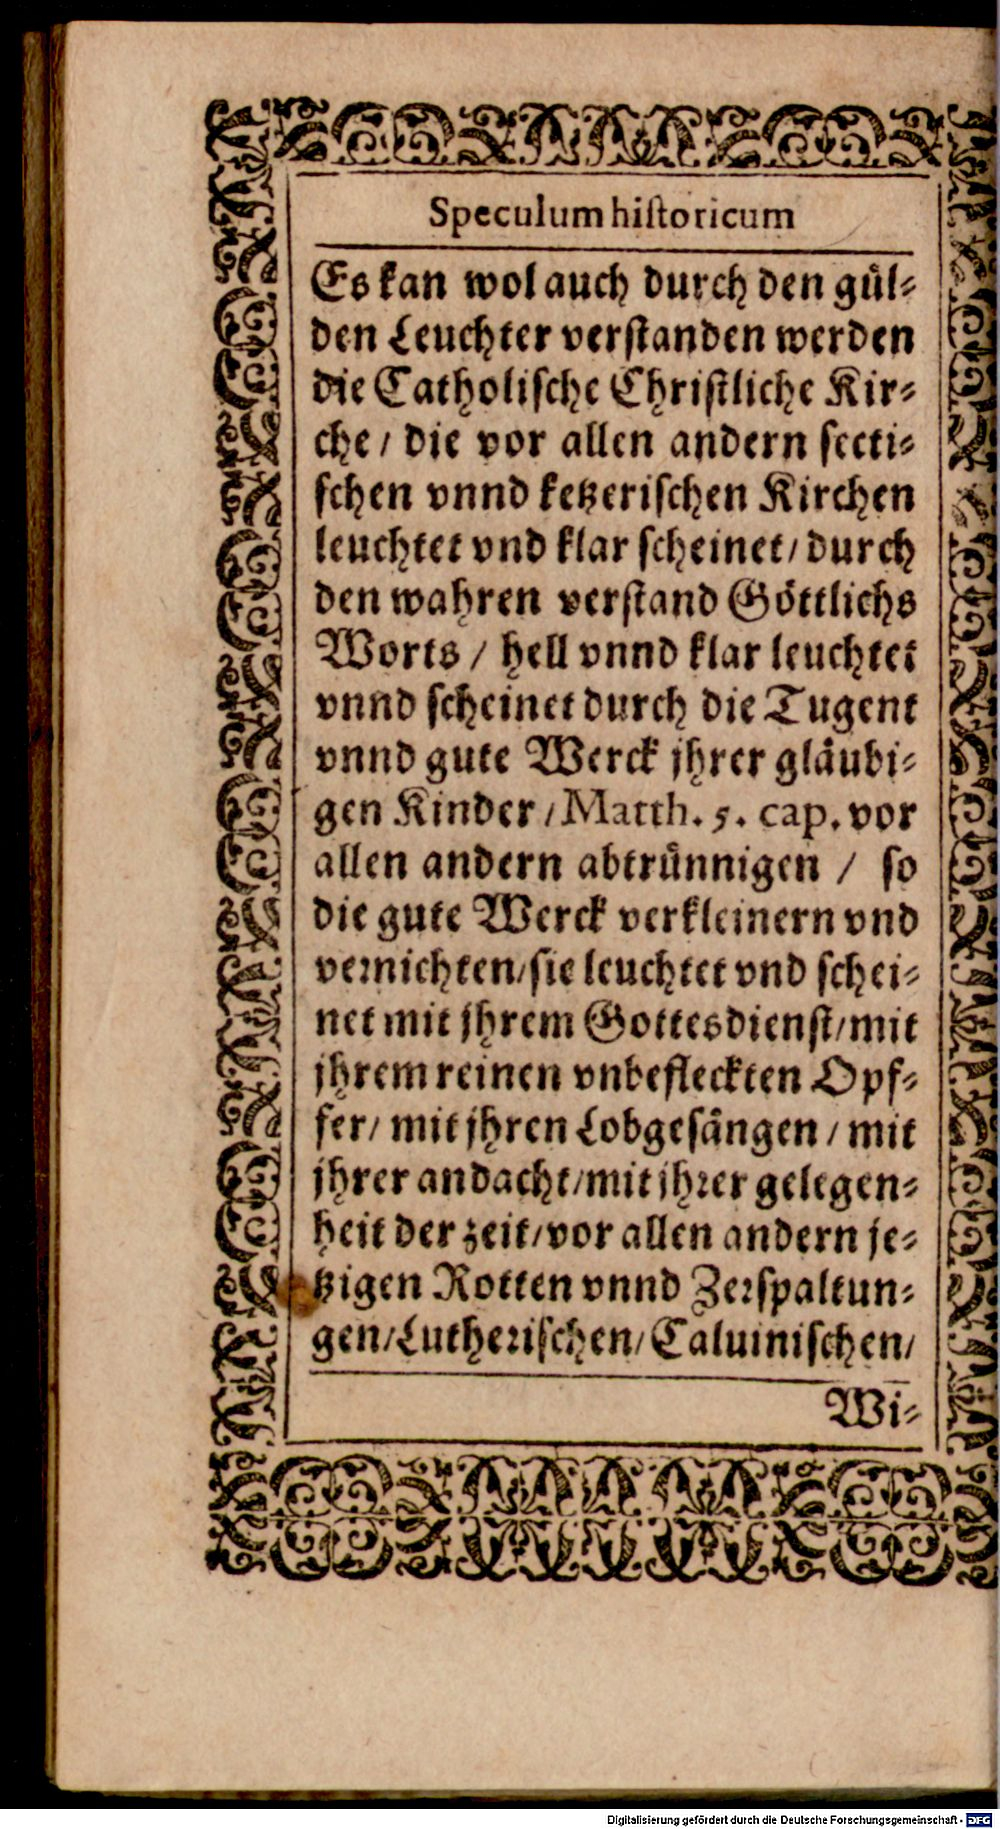 Speculum historicum
Es kan wol auch durch den gül-
den Leuchter verstanden werden
die Catholische Christliche Kir-
che / die vor allen andern secti-
schen vnnd ketzerischen Kirchen
leuchtet vnd klar scheinet / durch
den wahren verstand Göttlichs
Worts / hell vnnd klar leuchtet
vnnd scheinet durch die Tugent
vnnd gute Werck jhrer gläubi-
gen Kinder / Matth. 5. cap. vor
allen andern abtrünnigen / so
die gute Werck verkleinern vnd
vernichten / sie leuchtet vnd schei-
net mit jhrem Gottesdienst / mit
jhrem reinen vnbefleckten Opf-
fer / mit jhren Lobgesängen / mit
jhrer andacht / mit jhrer gelegen-
heit der zeit / vor allen andern je-
tzigen Rotten vnnd Zerspaltun-
gen / Lutherischen / Caluinischen /
Wi-
Digitalisierung gefördert durch die Deutsche Forschungsgemeinschaft - DFG